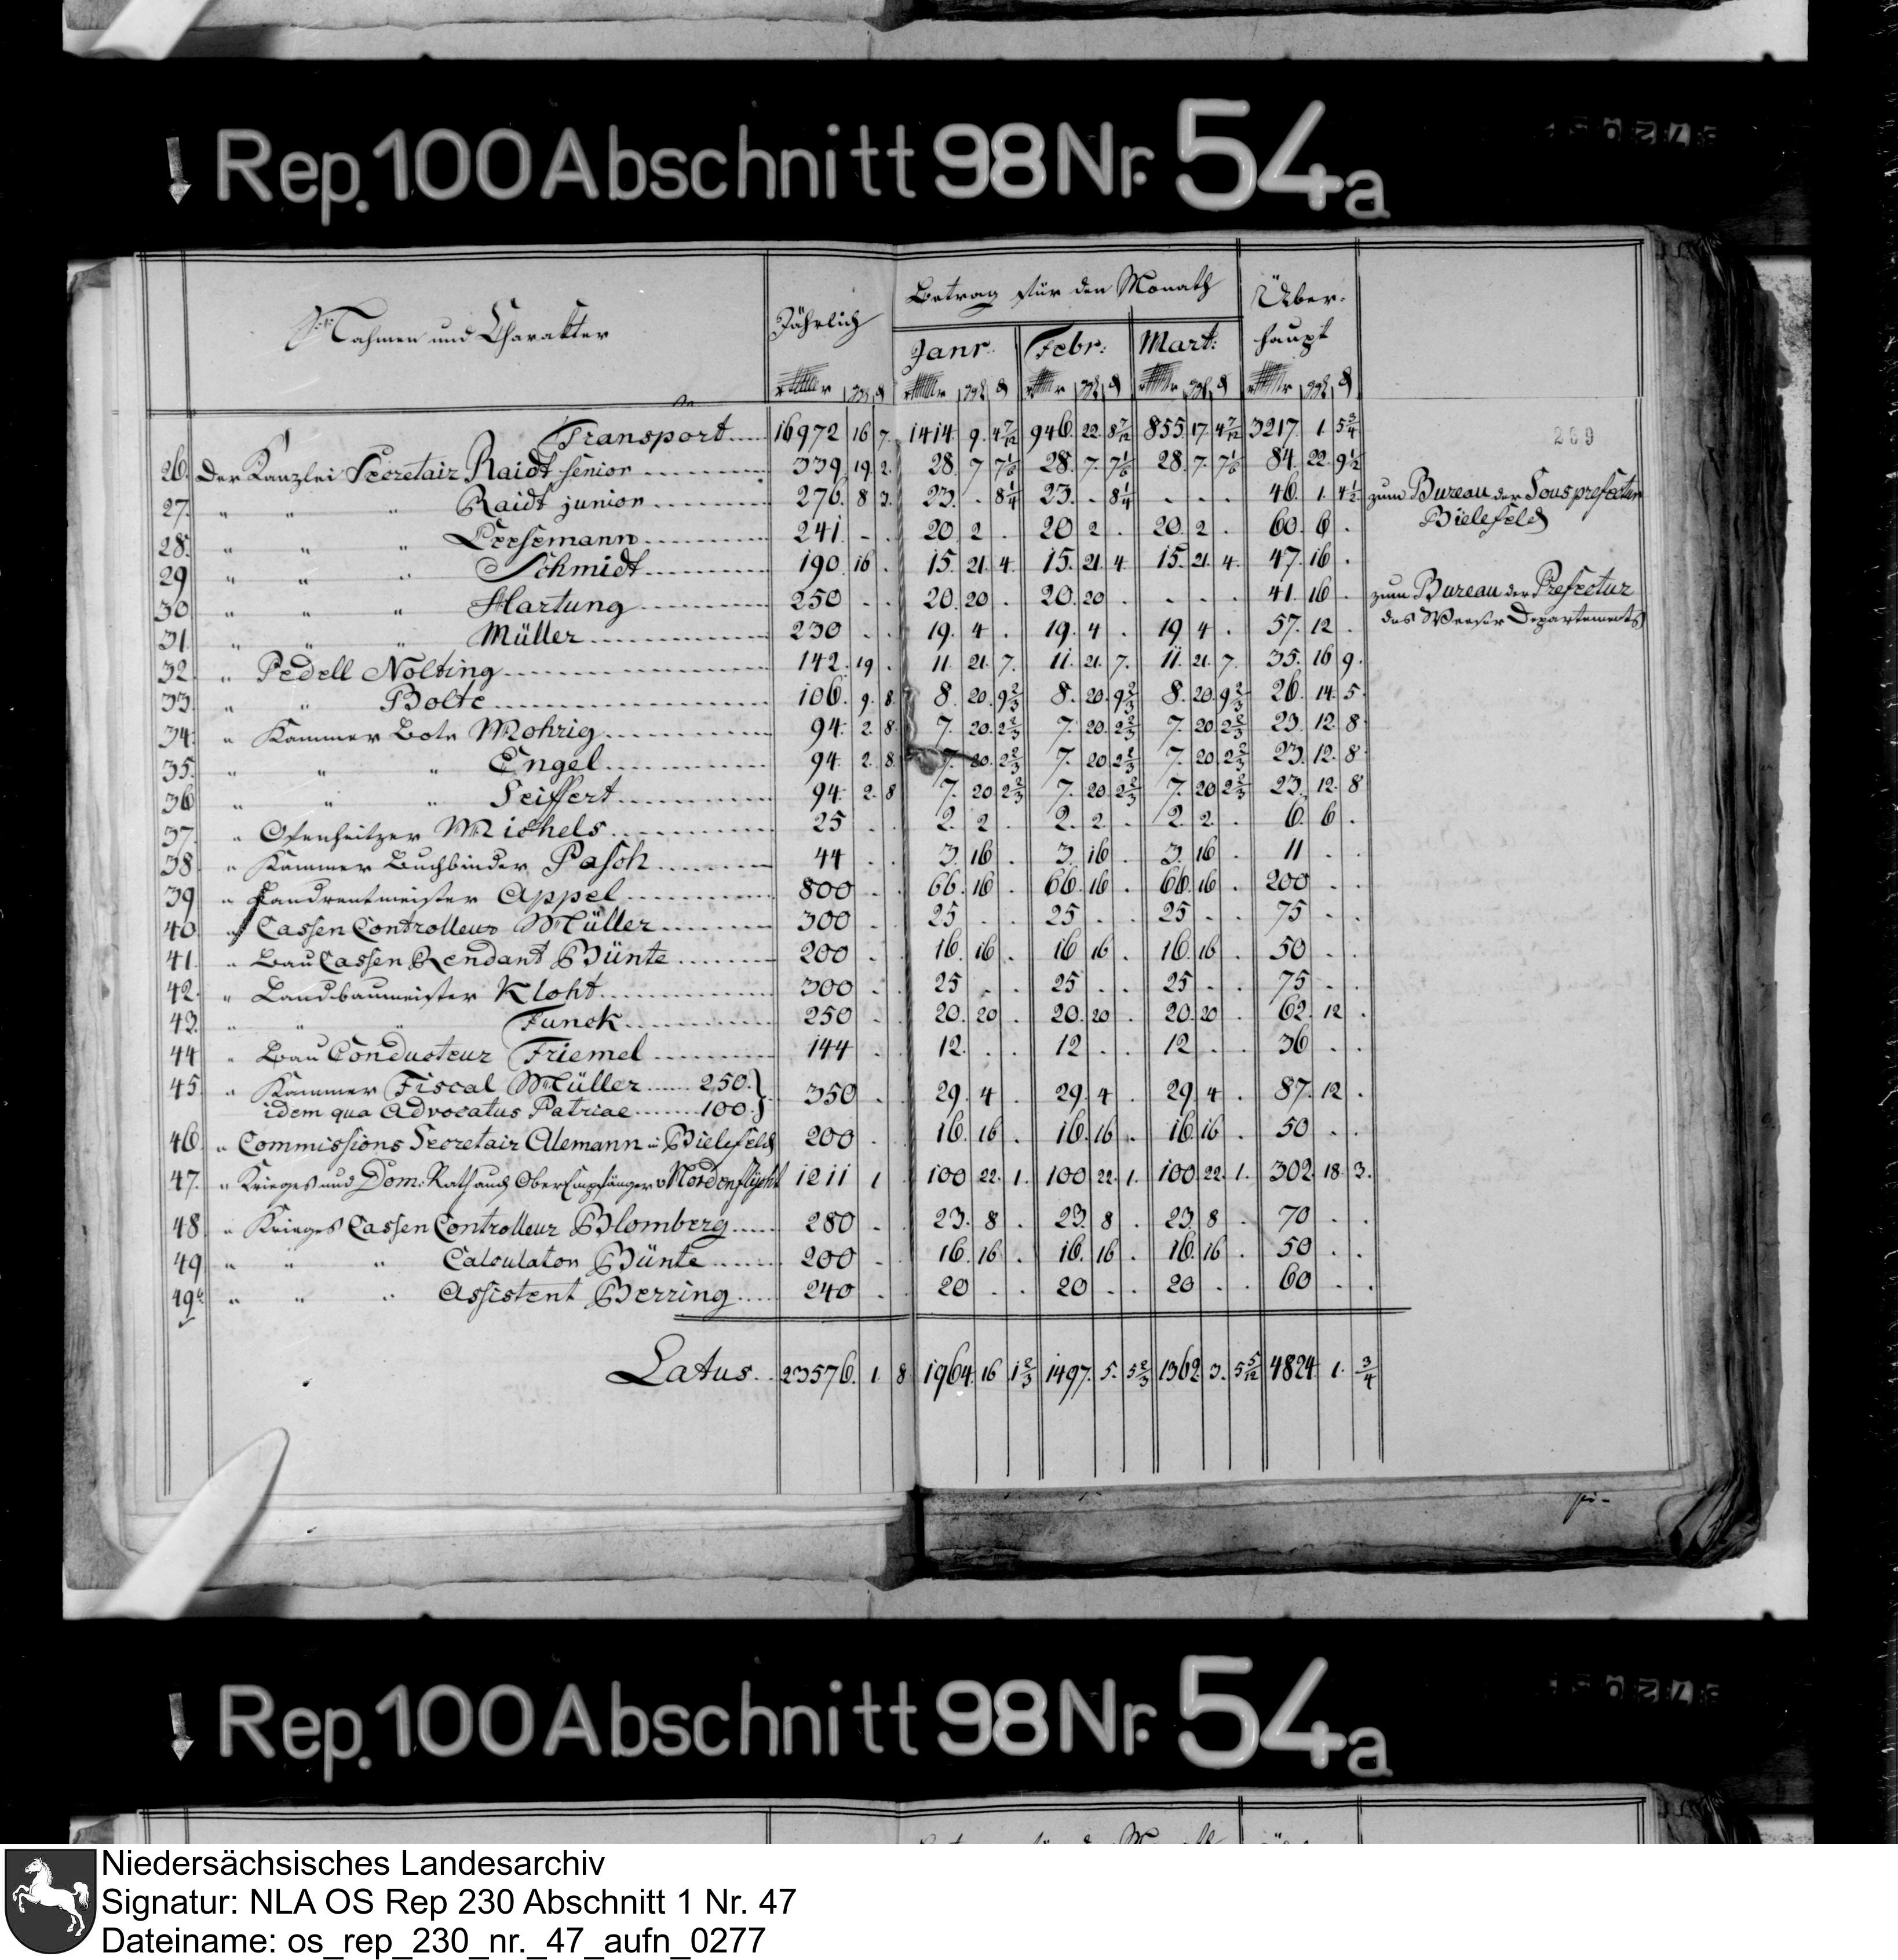 Rep. 100 Abschnitt 98 Nr. 54a
Nahmen und Charakter
Jährlich
Betrag für den Monath
Über-
haupt
Janr. Febr: Mart:
269
Transport..... 16972 16 7. 1414. 9. 4 7/12 946. 22. 8 7/12 855. 17. 4 7/12 3217. 1. 5 3/4
26. Der Kanzlei Secretair Raidt senior 339. 19. 2. 28. 7 7 1/6 28. 7. 7 1/6 28. 7. 7 1/6 84. 22. 9 1/2
27. " " " Raidt junior 276. 8 3. 23. . 8 1/4 23. . 8 1/4 . . . 46. 1. 4 1/2 zum Bureau der Sousprefectur
Bielefeld
28. " " " Leesemann 241. . . 20 2 . 20 2 . 20. 2 . 60. 6 .
29 " " " Schmidt 190. 16 . 15. 21. 4. 15. 21. 4 15. 21. 4. 47. 16 .
30 " " " Hartung 250 . . 20. 20 . 20. 20 . . . . 41. 16 . zum Bureau der Prefectur
des Weser Departements
31. " " " Müller 230 . . 19. 4 . 19. 4 . 19 4 . 57. 12 .
32. " Pedell Nolting 142. 19 . 11. 21. 7. 11. 21. 7. 11. 21. 7. 35. 16 9.
33. " " Bolte 106. 9. 8. 8. 20. 9 2/3 8. 20. 9 2/3 8. 20. 9 2/3 26. 14. 5.
34. " Kammer Bote Mohrig 94. 2. 8. 7. 20. 2 2/3 7. 20. 2 2/3 7. 20 2 2/3 23. 12. 8
35. " " " Engel 94. 2. 8. 7. 20. 2 2/3 7. 20 2 2/3 7. 20 2 2/3 23. 12. 8
36 " " " Seiffert 94. 2. 8 7. 20 2 2/3 7. 20. 2 2/3 7. 20 2 2/3 23. 12. 8
37. " Ofenheitzer Michels 25 . . 2. 2 . 2. 2. . 2. 2. . 6. 6 .
38 " Kammer Buchbinder Pasch 44 . . 3. 16 . 3. 16 . 3. 16 . 11 . .
39 " Landrentmeister Appel 800 . . 66. 16 . 66. 16 . 66. 16 . 200 . .
40. " Cassen Controlleur Müller 300 . . 25 . . 25 . . 25 . . 75 . .
41. " Bau Cassen Rendant Bünte 200 . . 16. 16 . 16 16 . 16. 16 . 50 . .
42. " Landbaumeister Kloht 300 . . 25 . . 25 . . 25 . . 75 . .
43. " " Funck 250 . . 20. 20 . 20. 20 . 20. 20 . 62. 12 .
44 " Bau Conducteur Friemel 144 . . 12. . . 12 . . 12 . . 36 . .
45. " Kammer Fiscal Müller ...... 250.}
idem qua Advocatus Patriae ....... 100.} 350 . . 29. 4 . 29. 4 . 29. 4 . 87. 12 .
46. " Commissions Secretair Alemann in Bielefeld 200 . . 16. 16 . 16. 16 . 16. 16 . 50 . .
47. " Krieges und Dom: Rath auch OberEmpfänger v Nordenflycht 1211 1 . 100 22. 1. 100 22. 1. 100. 22. 1. 302 18. 3.
48 " Krieges Cassen Controlleur Blomberg 280 . . 23. 8 . 23. 8 . 23. 8 . 70 . .
49 " " " Calculator Bünte 200 . . 16. 16 . 16. 16 . 16. 16 . 50 . .
49a " " " Assistent Berring 240 . . 20 . . 20 . . 20 . . 60 . .
Latus. 23576. 1. 8 1964. 16 1 2/3 1497. 5. 5 2/3 1362. 3. 5 5/12 4824. 1. 3/4
Rep. 100 Abschnitt 98 Nr. 54a
Niedersächsisches Landesarchiv
Signatur: NLA OS Rep 230 Abschnitt 1 Nr. 47
Dateiname: os_rep_230_nr._47_aufn_0277